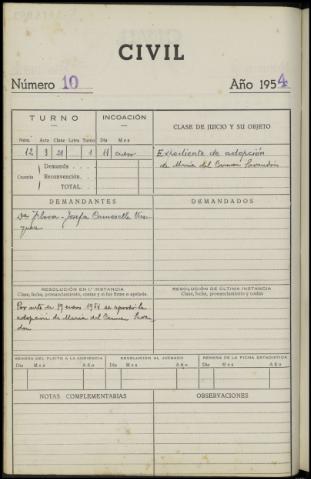 CIVIL
Número 10 Año 1954
TURNO INCOACIÓN CLASE DE JUICIO Y SU OBJETO
Núm. Acta Clase Letra Turno Día Mes
12 3 21 1 11 Enero Expediente de adopción
de María del Carmen
Cuantía Demanda
Reconvención
TOTAL
DEMANDANTES DEMANDADOS
Josefa
RESOLUCIÓN EN 1.ª INSTANCIA RESOLUCIÓN DE ÚLTIMA INSTANCIA
Clase, fecha, pronunciamiento, costas y si fue firme o apelada. Clase, fecha, pronunciamiento y costas
Por auto de 19 enero 1954 se aprobó la
adopción de María del Carmen
REMESA DEL PLEITO A LA AUDIENCIA DEVOLUCIÓN AL JUZGADO REMESA DE LA FICHA ESTADÍSTICA
Día Mes Año Día Mes Año Día Mes Año
NOTAS COMPLEMENTARIAS OBSERVACIONES